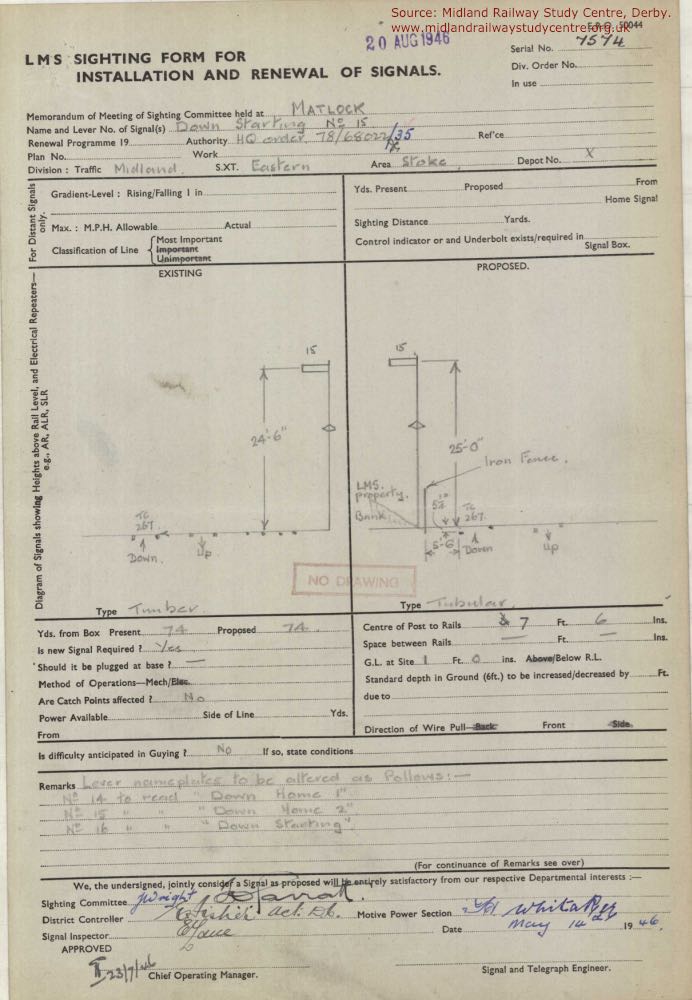 Source: Midland Railway Study Centre, Derby.
www.midlandrailwaystudycentre.org.uk
E.R.O. 50044
20 AUG 1946
Serial No. 7574
LMS SIGHTING FORM FOR
INSTALLATION AND RENEWAL OF SIGNALS.
Div. Order No.
In use
Memorandum of Meeting of Sighting Committee held at MATLOCK
Name and Lever No. of Signal(s) Down Starting No 15
Renewal Programme 19 Authority HQ order 78/68022/35 Ref'ce
Plan No. Work
Division : Traffic Midland S.XT. Eastern Area Stoke Depot No. X
For Distant Signals only.
Gradient-Level : Rising/Falling 1 in
Max. : M.P.H. Allowable Actual
Classification of Line { Most Important
Important
Unimportant
Yds. Present Proposed From
Home Signal
Sighting Distance Yards.
Control indicator or and Underbolt exists/required in
Signal Box.
Diagram of Signals showing Heights above Rail Level, and Electrical Repeaters—
e.g., AR, ALR, SLR
EXISTING
15
24'-6"
TC
267
Down. Up
Type Timber.
PROPOSED.
15
25'-0"
Iron Fence.
LMS.
property.
Bank
TC
267.
5'-6"
Down Up
Type Tubular
NO DRAWING
Yds. from Box Present 74 Proposed 74
Is new Signal Required ? Yes
Should it be plugged at base ? —
Method of Operations—Mech/Elec.
Are Catch Points affected ? No
Power Available Side of Line Yds.
From
Centre of Post to Rails 7 Ft. 6 Ins.
Space between Rails — Ft. — Ins.
G.L. at Site 1 Ft. 0 ins. Above/Below R.L.
Standard depth in Ground (6ft.) to be increased/decreased by Ft.
due to
Direction of Wire Pull—Back Front Side.
Is difficulty anticipated in Guying ? No If so, state conditions
Remarks Lever nameplates to be altered as follows:—
No 14 to read "Down Home 1"
No 15 " " "Down Home 2"
No 16 " " "Down Starting"
(For continuance of Remarks see over)
We, the undersigned, jointly consider a Signal as proposed will be entirely satisfactory from our respective Departmental interests :—
Sighting Committee JWright
District Controller
Motive Power Section Whitaker
Signal Inspector
Date May 14 1946.
APPROVED
23/7/46 Chief Operating Manager.
Signal and Telegraph Engineer.